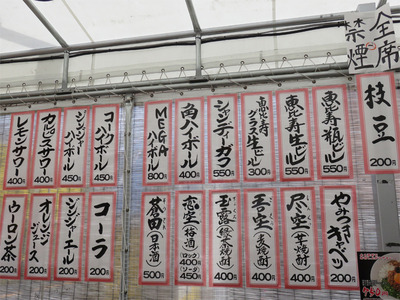 全席
禁煙
枝豆
200円
恵比寿瓶ビール
550円
恵比寿生ビール
550円
恵比寿
グラス生ビール
300円
シャンディーガフ
550円
角ハイボール
400円
MEGA
ハイボール
800円
コークハイボール
450円
ジンジャー
ハイボール
450円
カルピスサワー
400円
レモンサワー
400円
やみつきキャベツ
200円
尽空
(芋焼酎)
400円
玉空
(麦焼酎)
400円
玉露
(緑茶焼酎)
400円
恋空
(梅酒)
ロック
400円
ソーダ
450円
蒼田
(日本酒)
500円
コーラ
200円
ジンジャーエール
200円
オレンジ
ジュース
200円
ウーロン茶
200円